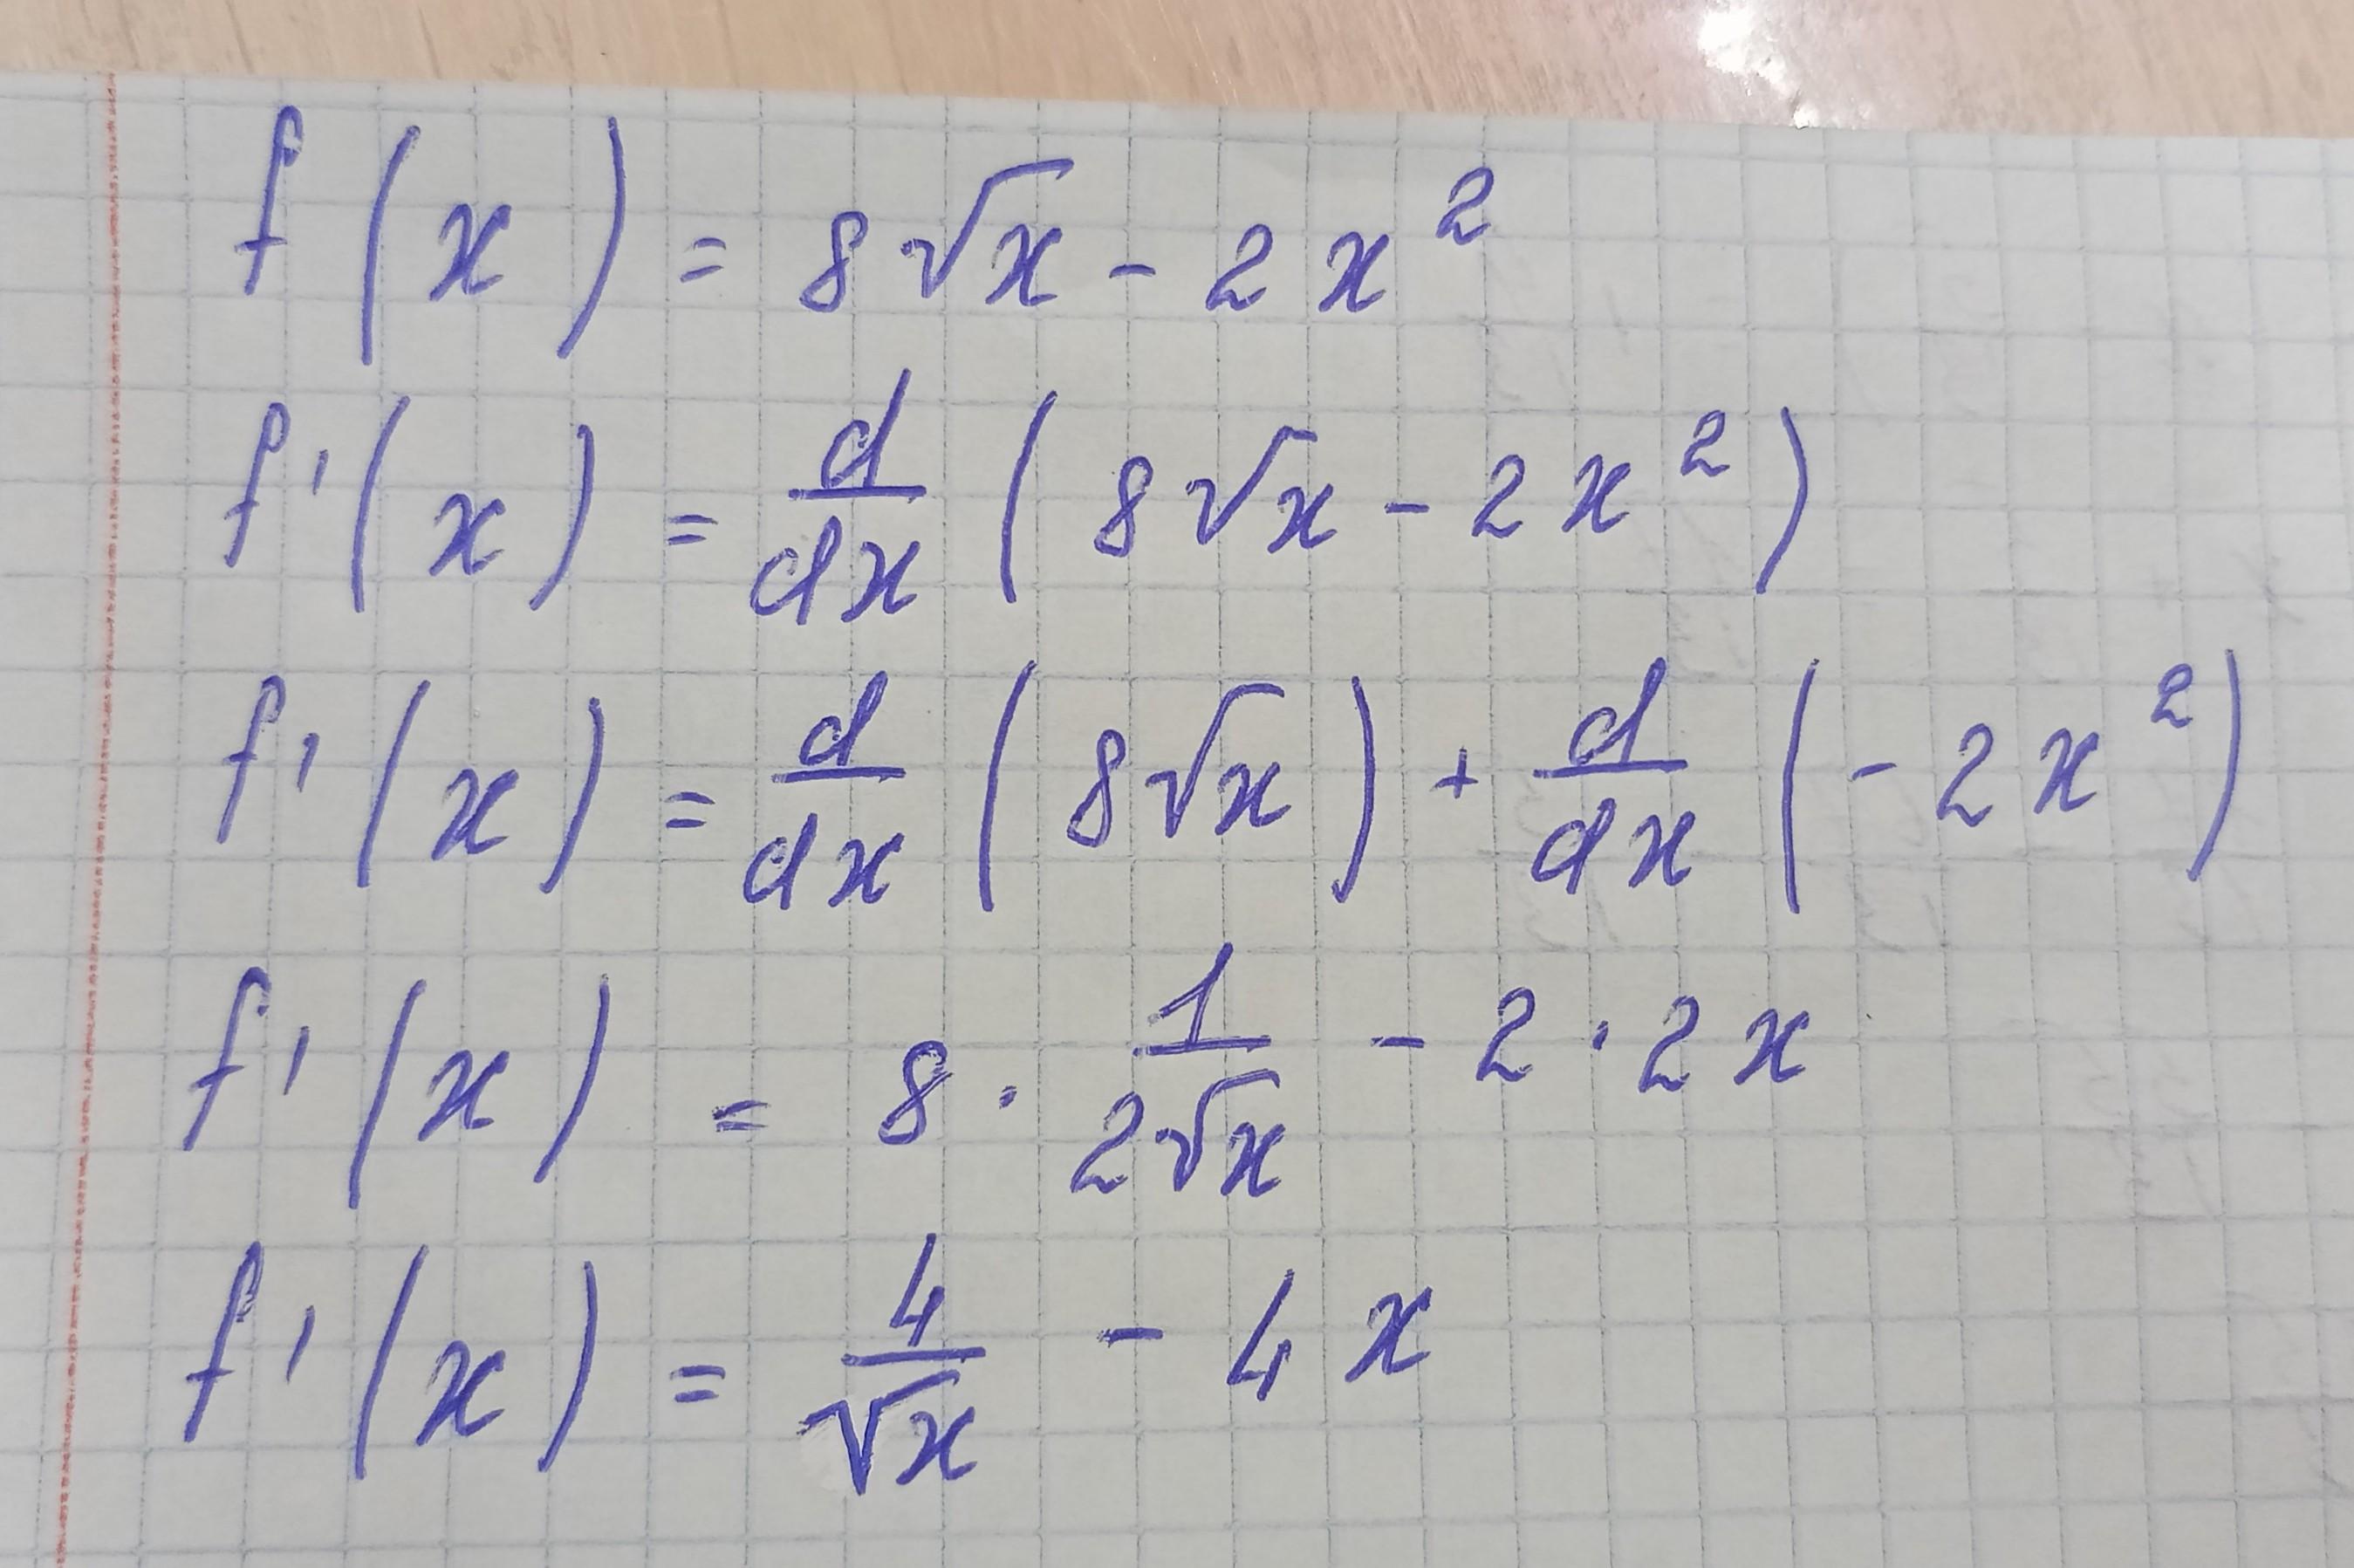 f(x) = 8√x - 2x²
f'(x) = d/dx (8√x - 2x²)
f'(x) = d/dx (8√x) + d/dx (-2x²)
f'(x) = 8 · 1/(2√x) - 2 · 2x
f'(x) = 4/√x - 4x